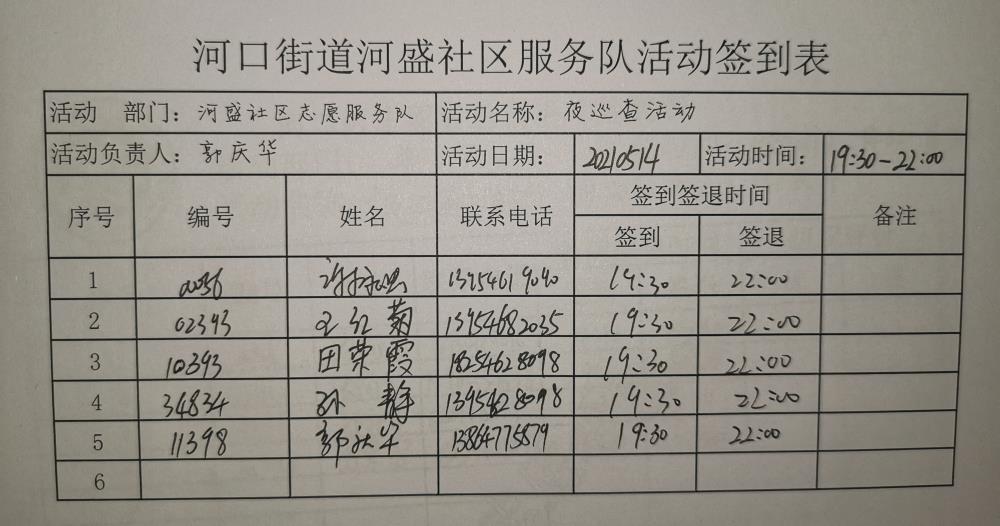 河口街道河盛社区服务队活动签到表
活动 部门：河盛社区志愿服务队 活动名称：夜巡查活动
活动负责人：郭庆华 活动日期：20210514 活动时间：19:30-22:00
序号 编号 姓名 联系电话 签到签退时间 备注
签到 签退
1 0036 19:30 22:00
2 02393 王红菊 13954682035 19:30 22:00
3 10393 田荣霞 18254628098 19:30 22:00
4 34834 孙静 13954628098 19:30 22:00
5 11398 郭秋华 13864775879 19:30 22:00
6